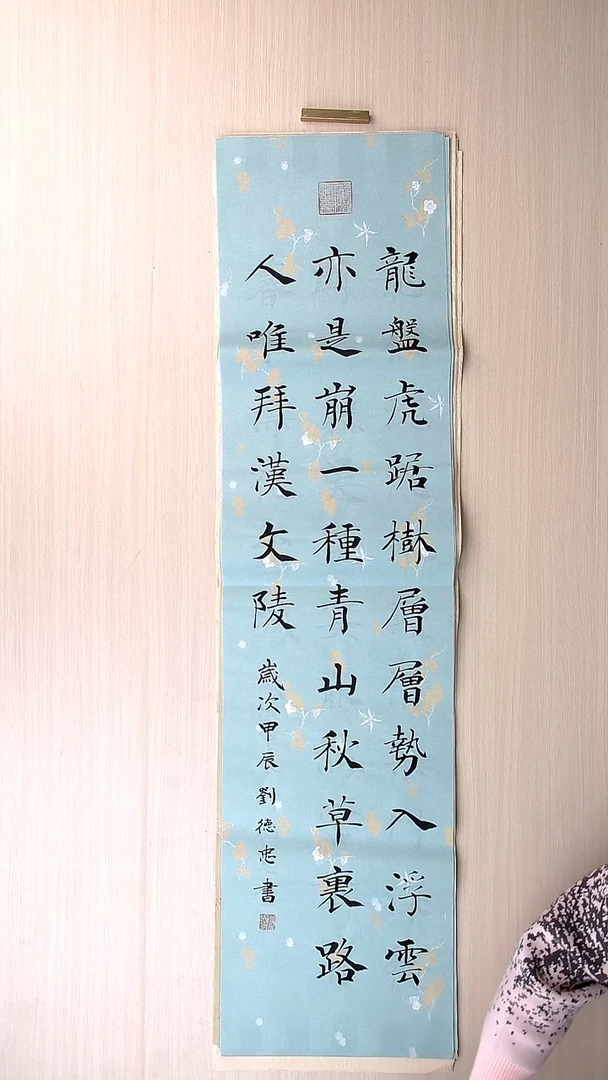 龍盤虎踞樹層層勢入浮雲
亦是崩一種青山秋草裏路
人唯拜漢文陵
歲次甲辰劉德忠書